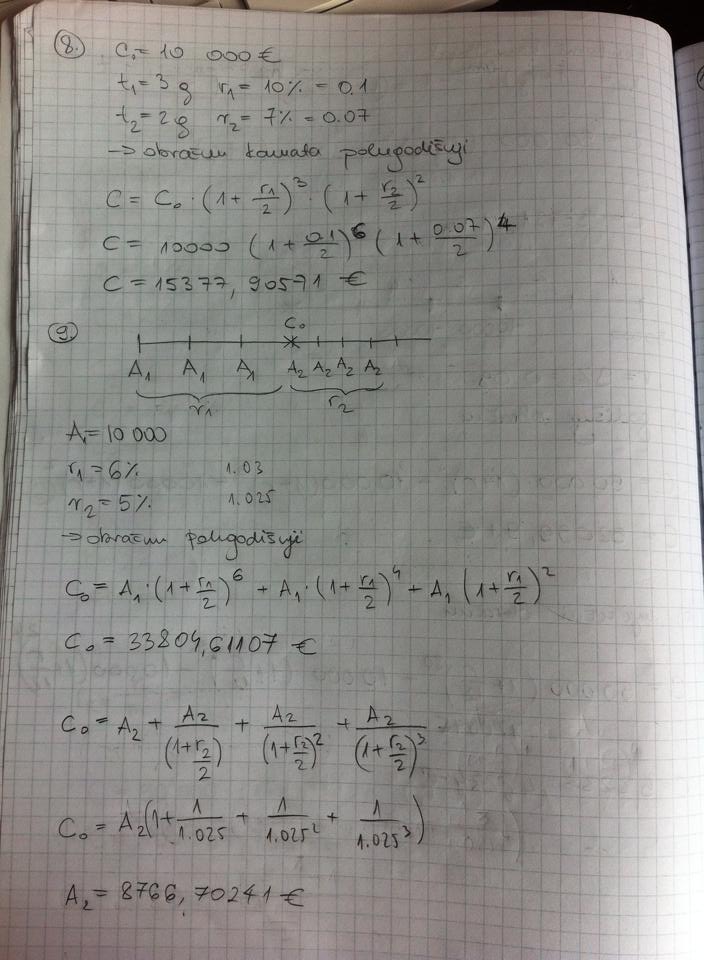 8. C₀ = 10 000 €
t₁ = 3 g r₁ = 10% = 0.1
t₂ = 2 g r₂ = 7% = 0.07
→ obračun kamata polugodišnji
C = C₀ · (1 + r₁/2)³ · (1 + r₂/2)²
C = 10000 (1 + 0.1/2)⁶ (1 + 0.07/2)⁴
C = 15377,90571 €
9. C₀
A₁ A₁ A₁ A₂ A₂ A₂ A₂
r₁ r₂
A₁ = 10 000
r₁ = 6% 1.03
r₂ = 5% 1.025
→ obračun polugodišnji
C₀ = A₁ · (1 + r₁/2)⁶ + A₁ · (1 + r₁/2)⁴ + A₁ (1 + r₁/2)²
C₀ = 33804,61107 €
C₀ = A₂ + A₂/(1 + r₂/2) + A₂/(1 + r₂/2)² + A₂/(1 + r₂/2)³
C₀ = A₂(1 + 1/1.025 + 1/1.025² + 1/1.025³)
A₂ = 8766,70241 €